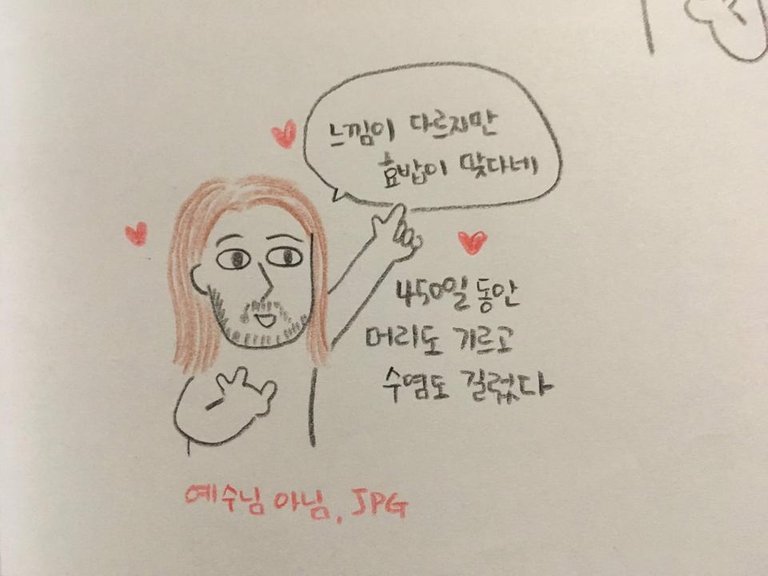 느낌이 다르지만
효밥이 맞다네
450일 동안
머리도 기르고
수염도 길렀다
예수님 아님.JPG